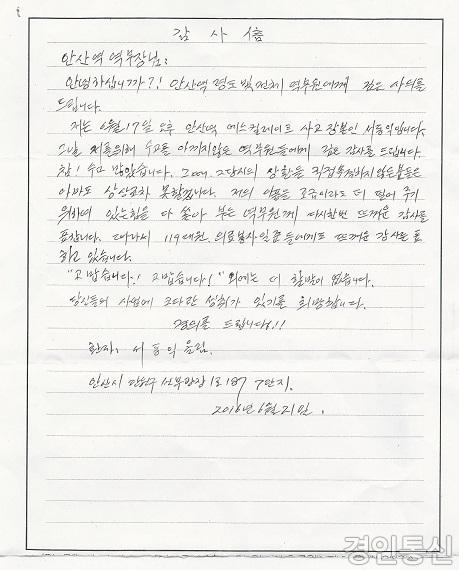 감 사 信
안산역 역무장님:
안녕하십니까?! 안산역 및 전체 역무원에게 깊은 사의를
드립니다.
저는 6월17일 오후 안산역 에스컬레이트 사고 장본인 서동의입니다.
그날 저를 위해 수고를 아끼지 않은 역무원들에게 깊은 감사를 드립니다.
참! 수고 많았습니다. 그 당시의 상황을 직접 목격하지 않은 분들은
아마도 상상조차 못할겁니다. 저의 아픔을 조금이라도 더 덜어 주기
위하여 있는 힘을 다 쏟아 부은 역무원께 다시한번 뜨거운 감사를
표합니다. 따라서 119대원, 의료봉사일꾼들에게도 뜨거운 감사를 표
하고 있습니다.
"고맙습니다! 고맙습니다!" 외에는 더 할말이 없습니다.
당신들의 사업에 크다란 성취가 있기를 희망합니다.
경의를 드립니다!!
환자: 서동의 올림.
안산시 단원구 선부광장1로 187 7단지.
2016년 6월 21일.
경인통신